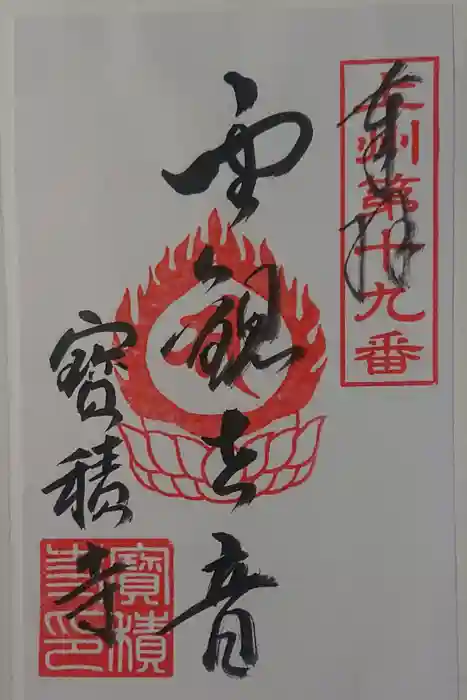 奉拝
州第十九番
聖観世音
寶積寺
寶積寺印